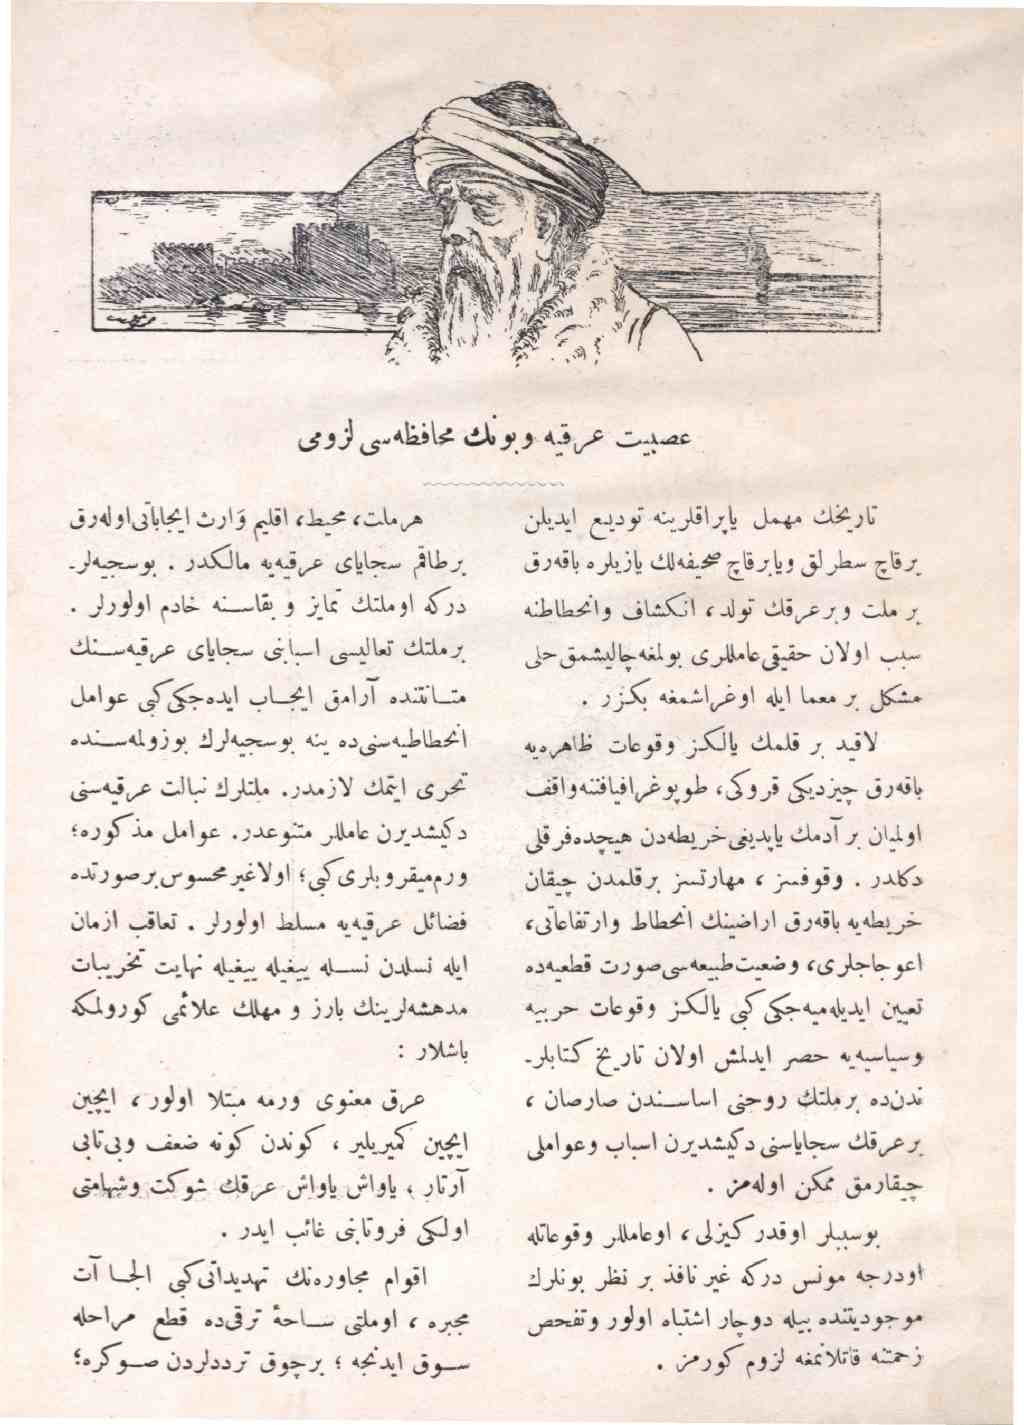 عصبيت عرقيه وبونك محافظه‌سی لزومی
تاريخك مهمل ياپراقلرينه توديع ايديلن
برقاچ سطرلق ويابرقاچ صحيفه‌لك يازيلره باقه‌رق
بر ملت وبرعرقك تولد، انكشاف وانحطاطنه
سبب اولان حقيقی‌عامللری بولمغه چاليشمق حلی
مشكل بر معما ايله اوغراشمغه بكزر .
لاقيد بر قلمك يالكز وقوعات ظاهره‌يه
باقه‌رق چيزديكی قروكی، طوپوغرافيافننه واقف
اولميان بر آدمك ياپديغی‌خريطه‌دن هيچده‌فرقلی
دكلدر . وقوفسز ، مهارتسز برقلمدن چيقان
خريطه‌يه باقه‌رق اراضينك انحطاط وارتفاعاتی،
اعوجاجلری، وضعيت‌طبيعه‌سی‌صورت قطعيه‌ده
تعيين ايديله‌ميه‌جكی‌كبی يالكز وقوعات حربيه
وسياسيه‌يه حصر ايدلمش اولان تاريخ كتابلر-
ندن‌ده برملتك روحنی اساسندن صارصان ،
برعرقك سجاياسنی دكيشديرن اسباب وعواملی
چيقارمق ممكن اوله‌مز .
بوسببلر اوقدر كيزلی، اوعامللر وقوعاتله
اودرجه مونس دركه غير نافذ بر نظر بونلرك
موجوديتنده بيله دوچار اشتباه اولور وتفحص
زحمتنه قاتلانمغه لزوم كورمز .
هرملت، محيط، اقليم وَارث ايجاباتی‌اوله‌رق
برطاقم سجايای عرقيه‌يه مالكدر . بوسجيه‌لر-
دركه اوملتك تمايز و بقاسنه خادم اولورلر .
برملتك تعاليسی اسبابنی سجايای عرقيه‌سنك
متانتنده آرامق ايجاب ايده‌جكی‌كبی عوامل
انحطاطيه‌سنی‌ده ينه بوسجيه‌لرك بوزولمه‌سنده
تحری ايتمك لازمدر. ملتلرك نبالت عرقيه‌سنی
دكيشديرن عامللر متنوعدر. عوامل مذكوره؛
ورم‌ميقروبلری‌كبی؛ اولاغيرمحسوس‌برصورتده
فضائل عرقيه‌يه مسلط اولورلر . تعاقب ازمان
ايله نسلدن نسله ييغيله ييغيله نهايت تخريبات
مدهشه‌لرينك بارز و مهلك علائمی كورولمكه
باشلار :
عرق معنوی ورمه مبتلا اولور ، ايچين
ايچين كميريلير ، كوندن كونه ضعف وبی‌تابی
آرتار ، ياواش ياواش عرقك شوكت وشهامتی
اولكی فروتابنی غائب ايدر .
اقوام مجاوره‌نك تهديداتی‌كبی الجاآت
مجبره ، اوملتی ساحۀ ترقی‌ده قطع مراحله
سوق ايدنجه ؛ برچوق ترددلردن صوكره؛